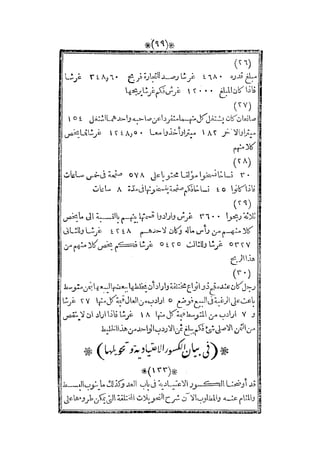 (٩٩)
(٢٦)
مبلغ قدره ٤٦٨٠ غرشا رصد للتجارة فربح ٣٤٨,٦٠ غرشا
فاذا كان المبلغ ١٢٠٠٠ غرش فكم غرشا يربحها
(٢٧)
صانعان كان يشتغل كل منهما منفردا عن صاحبه واحدهما اشتغل ١٥٤
ميترا والآخر ١٨٢ ميترا وأخذوا معا ١٢٤٨,٥٠ غرشا فما يخص
كلا منهم
(٢٨)
٣٠ نساخا نسخوا مؤلفا محتويا على ٥٧٨ صفحة فى خمس ساعات
فاذا كانوا ٤٥ نساخا فكم صفحة ينسخونها فى مدة ٨ ساعات
(٢٩)
ثلاثة ربحوا ٣٦٠٠ غرش وارادوا قسمتها بينهم بالنسبة الى ما يخص
كلا منهم من رأس ماله وكان لاحدهم ٤٢٤٨ غرشا وللثانى
٥٣٢٧ غرشا وللثالث ٥٤٢٥ غرشا فكم يخص كلا منهم من
هذا الربح
(٣٠)
رجل كان عنده قمح ذو انواع مختلفة واراد أن يخلطها ببعضها ليبيعها بثمن متوسط
باعث على الرغبة فى البيع فوضع ٥ ارادب من العال قيمة كل منها ٢٧ غرشا
و ٧ ارادب من المتوسط قيمة كل منها ١٨ غرشا فاذا اراد ان لا ينقص
من الثمن الاصلى شئ فكم يبلغ ثمن الاردب الواحد من هذا الخليط
(فى بيان الكسور الاعتيادية وتحويلها)
(١٣٣)
قد أوضحنا الكسور الاعتيادية فى باب العد وكذلك ما ينوب البسط
والمقام عنه والمطلوب الآن شرح التحويلات المختلفة التى يمكن طروها على